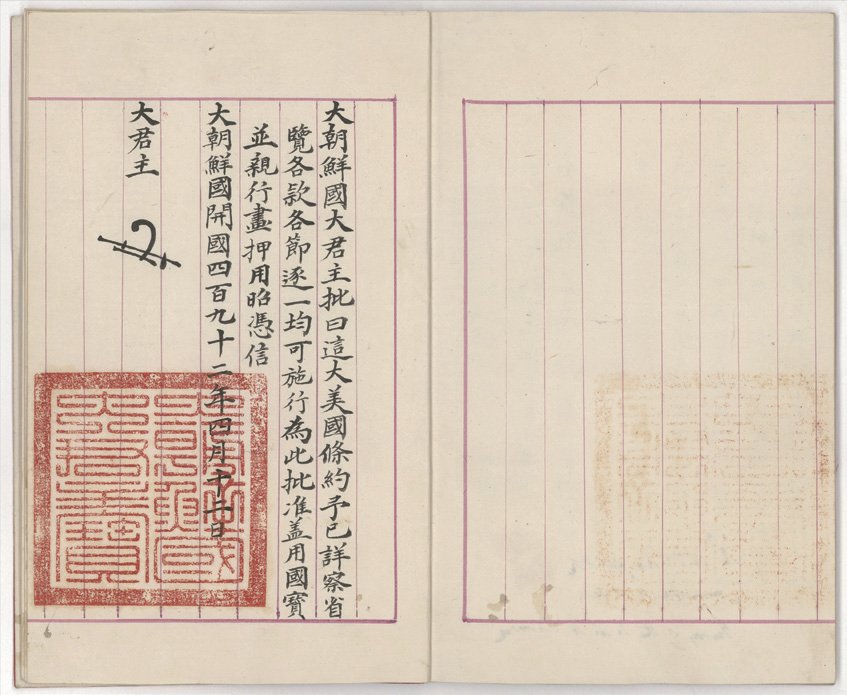 大朝鮮國大君主批曰這大美國條約予已詳察省
覽各款各節逐一均可施行為此批准盖用國寶
並親行畫押用昭憑信
大朝鮮國開國四百九十二年四月十二日
大君主